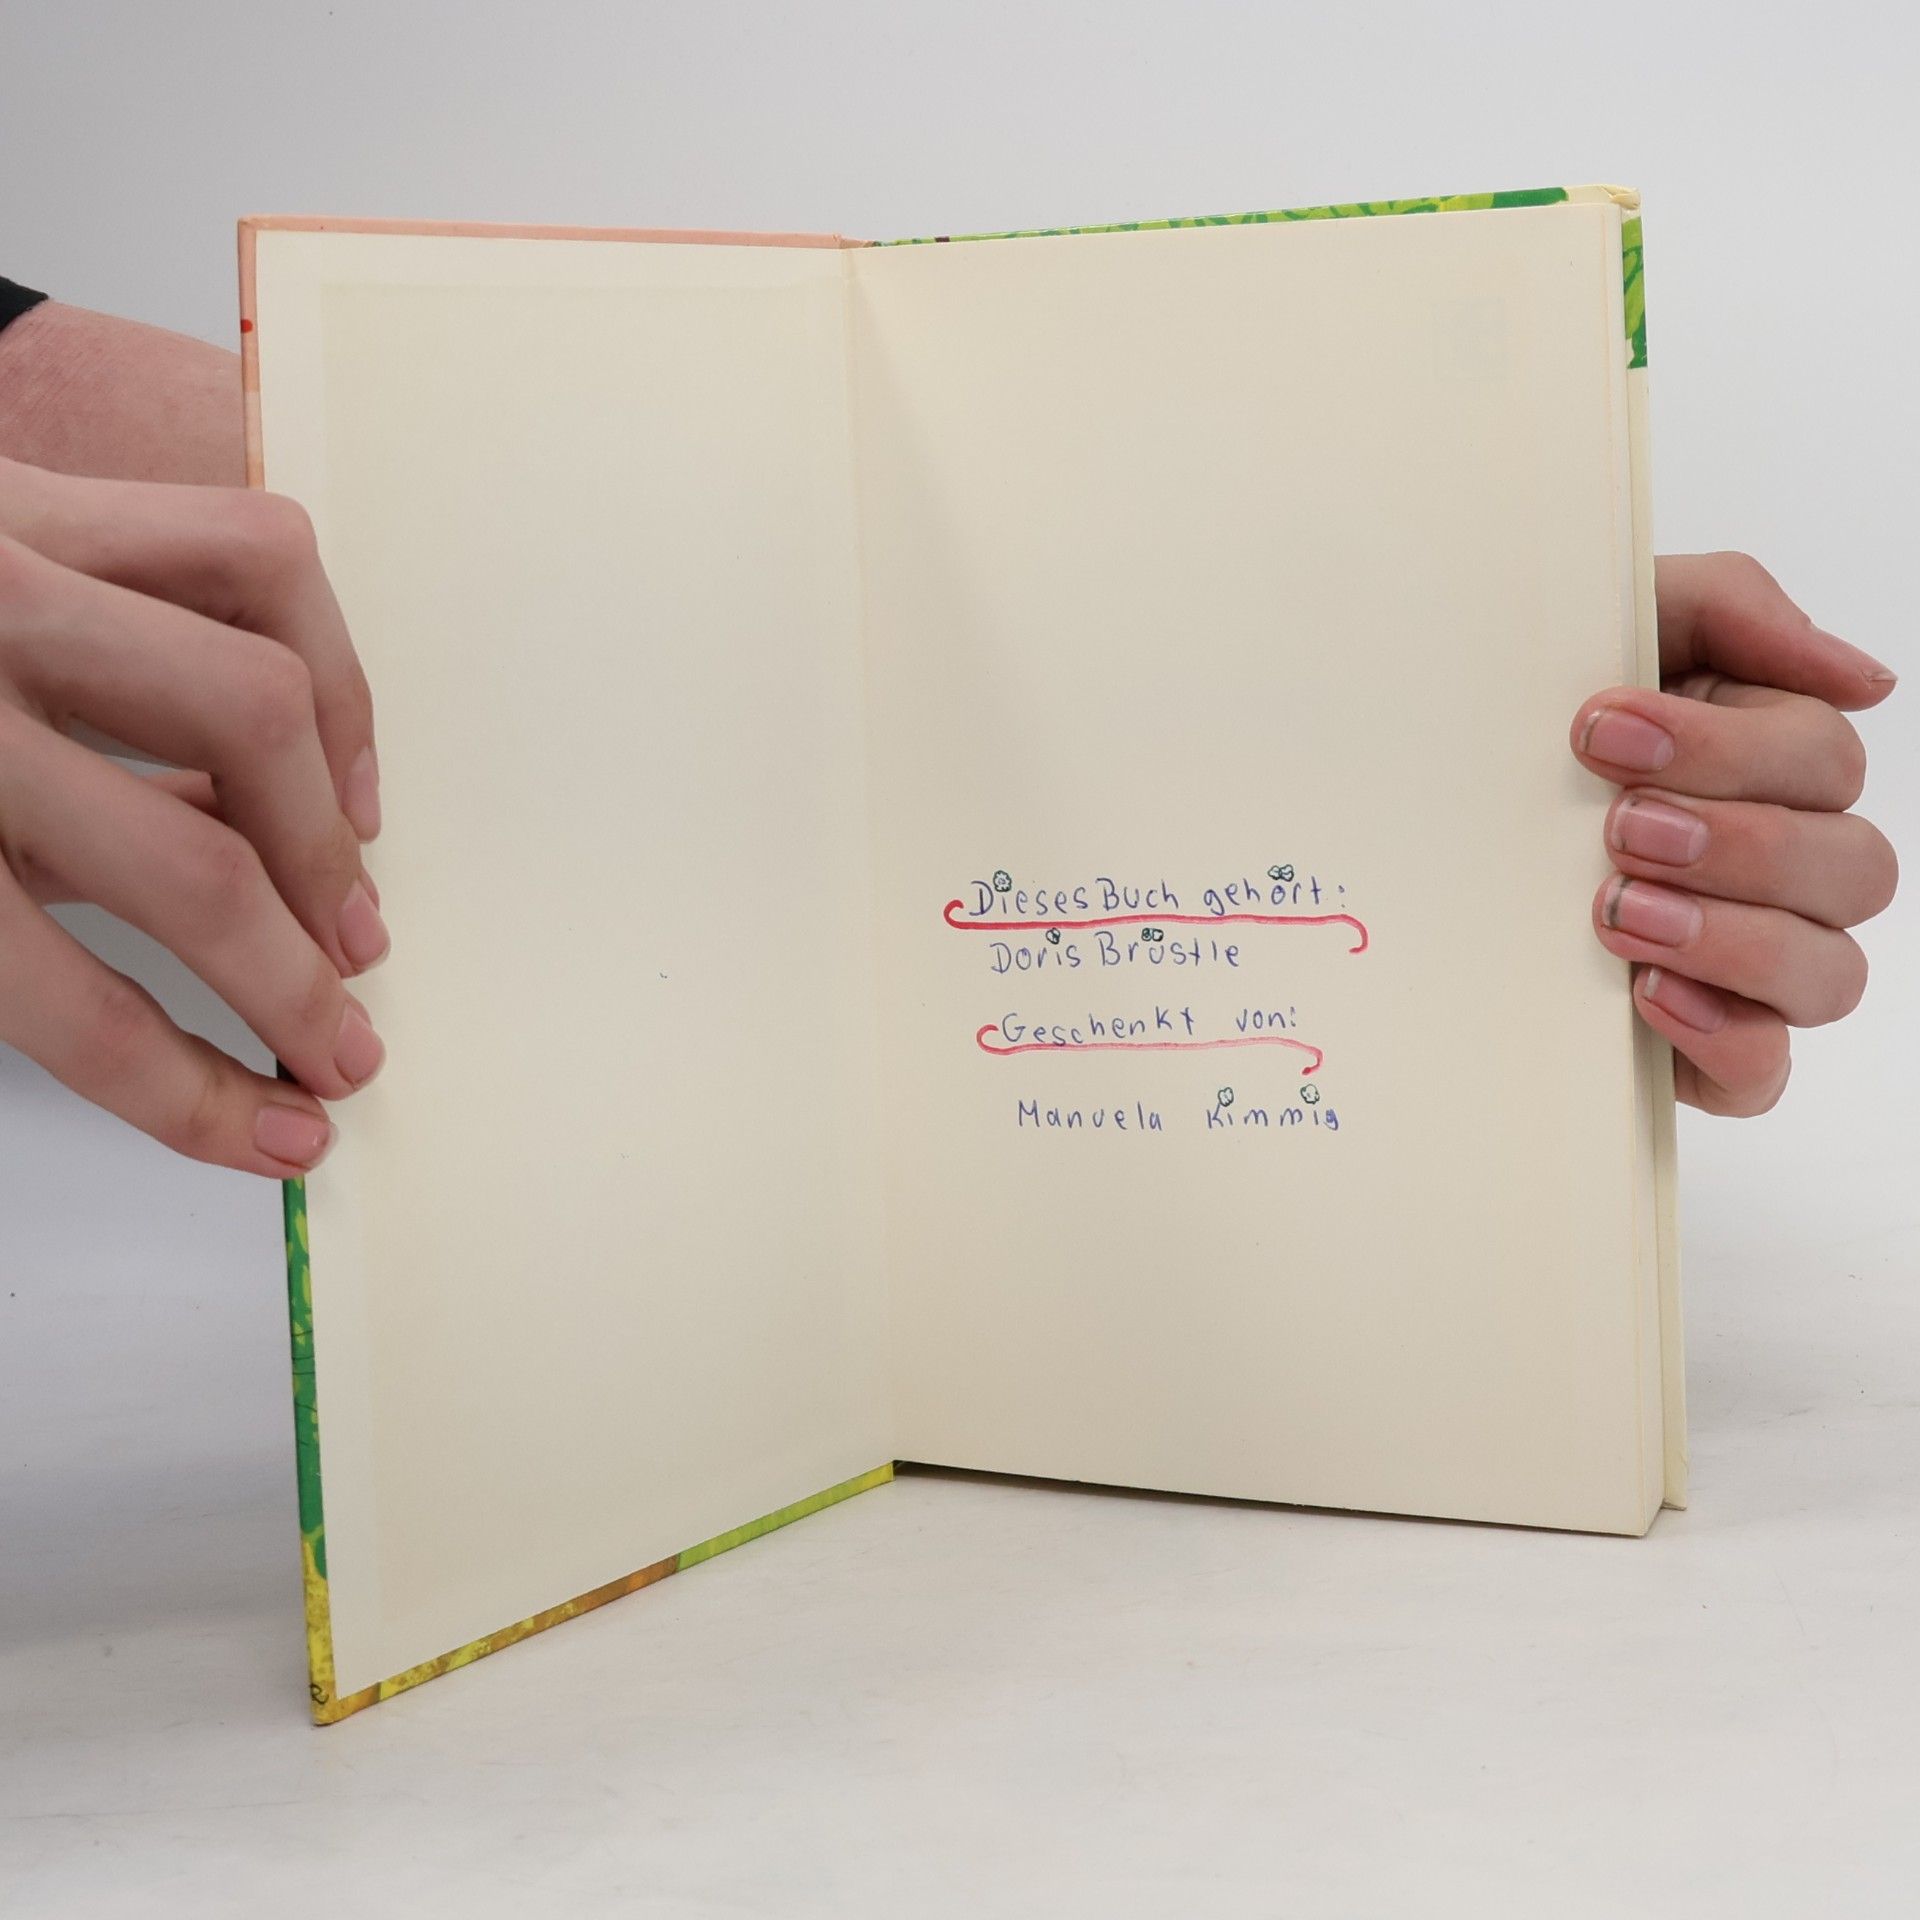 Dieses Buch gehört:
Doris Brüstle
Geschenkt von:
Manuela Kimmig